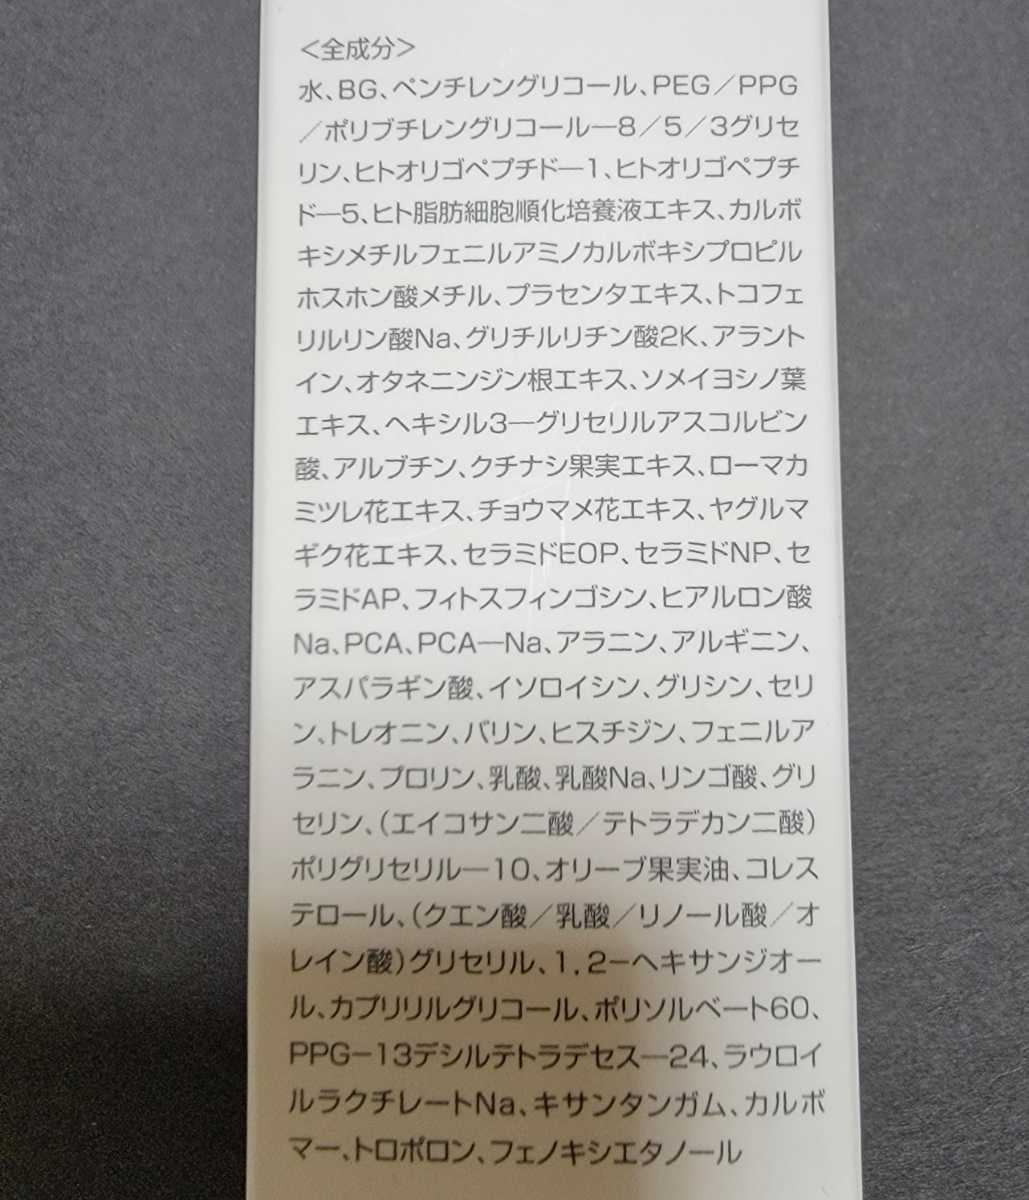 ＜全成分＞
水、BG、ペンチレングリコール、PEG／PPG
／ポリブチレングリコール―8／5／3グリセ
リン、ヒトオリゴペプチド―1、ヒトオリゴペプチ
ド―5、ヒト脂肪細胞順化培養液エキス、カルボ
キシメチルフェニルアミノカルボキシプロピル
ホスホン酸メチル、プラセンタエキス、トコフェ
リルリン酸Na、グリチルリチン酸2K、アラント
イン、オタネニンジン根エキス、ソメイヨシノ葉
エキス、ヘキシル3―グリセリルアスコルビン
酸、アルブチン、クチナシ果実エキス、ローマカ
ミツレ花エキス、チョウマメ花エキス、ヤグルマ
ギク花エキス、セラミドEOP、セラミドNP、セ
ラミドAP、フィトスフィンゴシン、ヒアルロン酸
Na、PCA、PCA―Na、アラニン、アルギニン、
アスパラギン酸、イソロイシン、グリシン、セリ
ン、トレオニン、バリン、ヒスチジン、フェニルア
ラニン、プロリン、乳酸、乳酸Na、リンゴ酸、グリ
セリン、（エイコサン二酸／テトラデカン二酸）
ポリグリセリル―10、オリーブ果実油、コレス
テロール、（クエン酸／乳酸／リノール酸／オ
レイン酸）グリセリル、1，2－ヘキサンジオー
ル、カプリリルグリコール、ポリソルベート60、
PPG－13デシルテトラデセス―24、ラウロイ
ルラクチレートNa、キサンタンガム、カルボ
マー、トロポロン、フェノキシエタノール